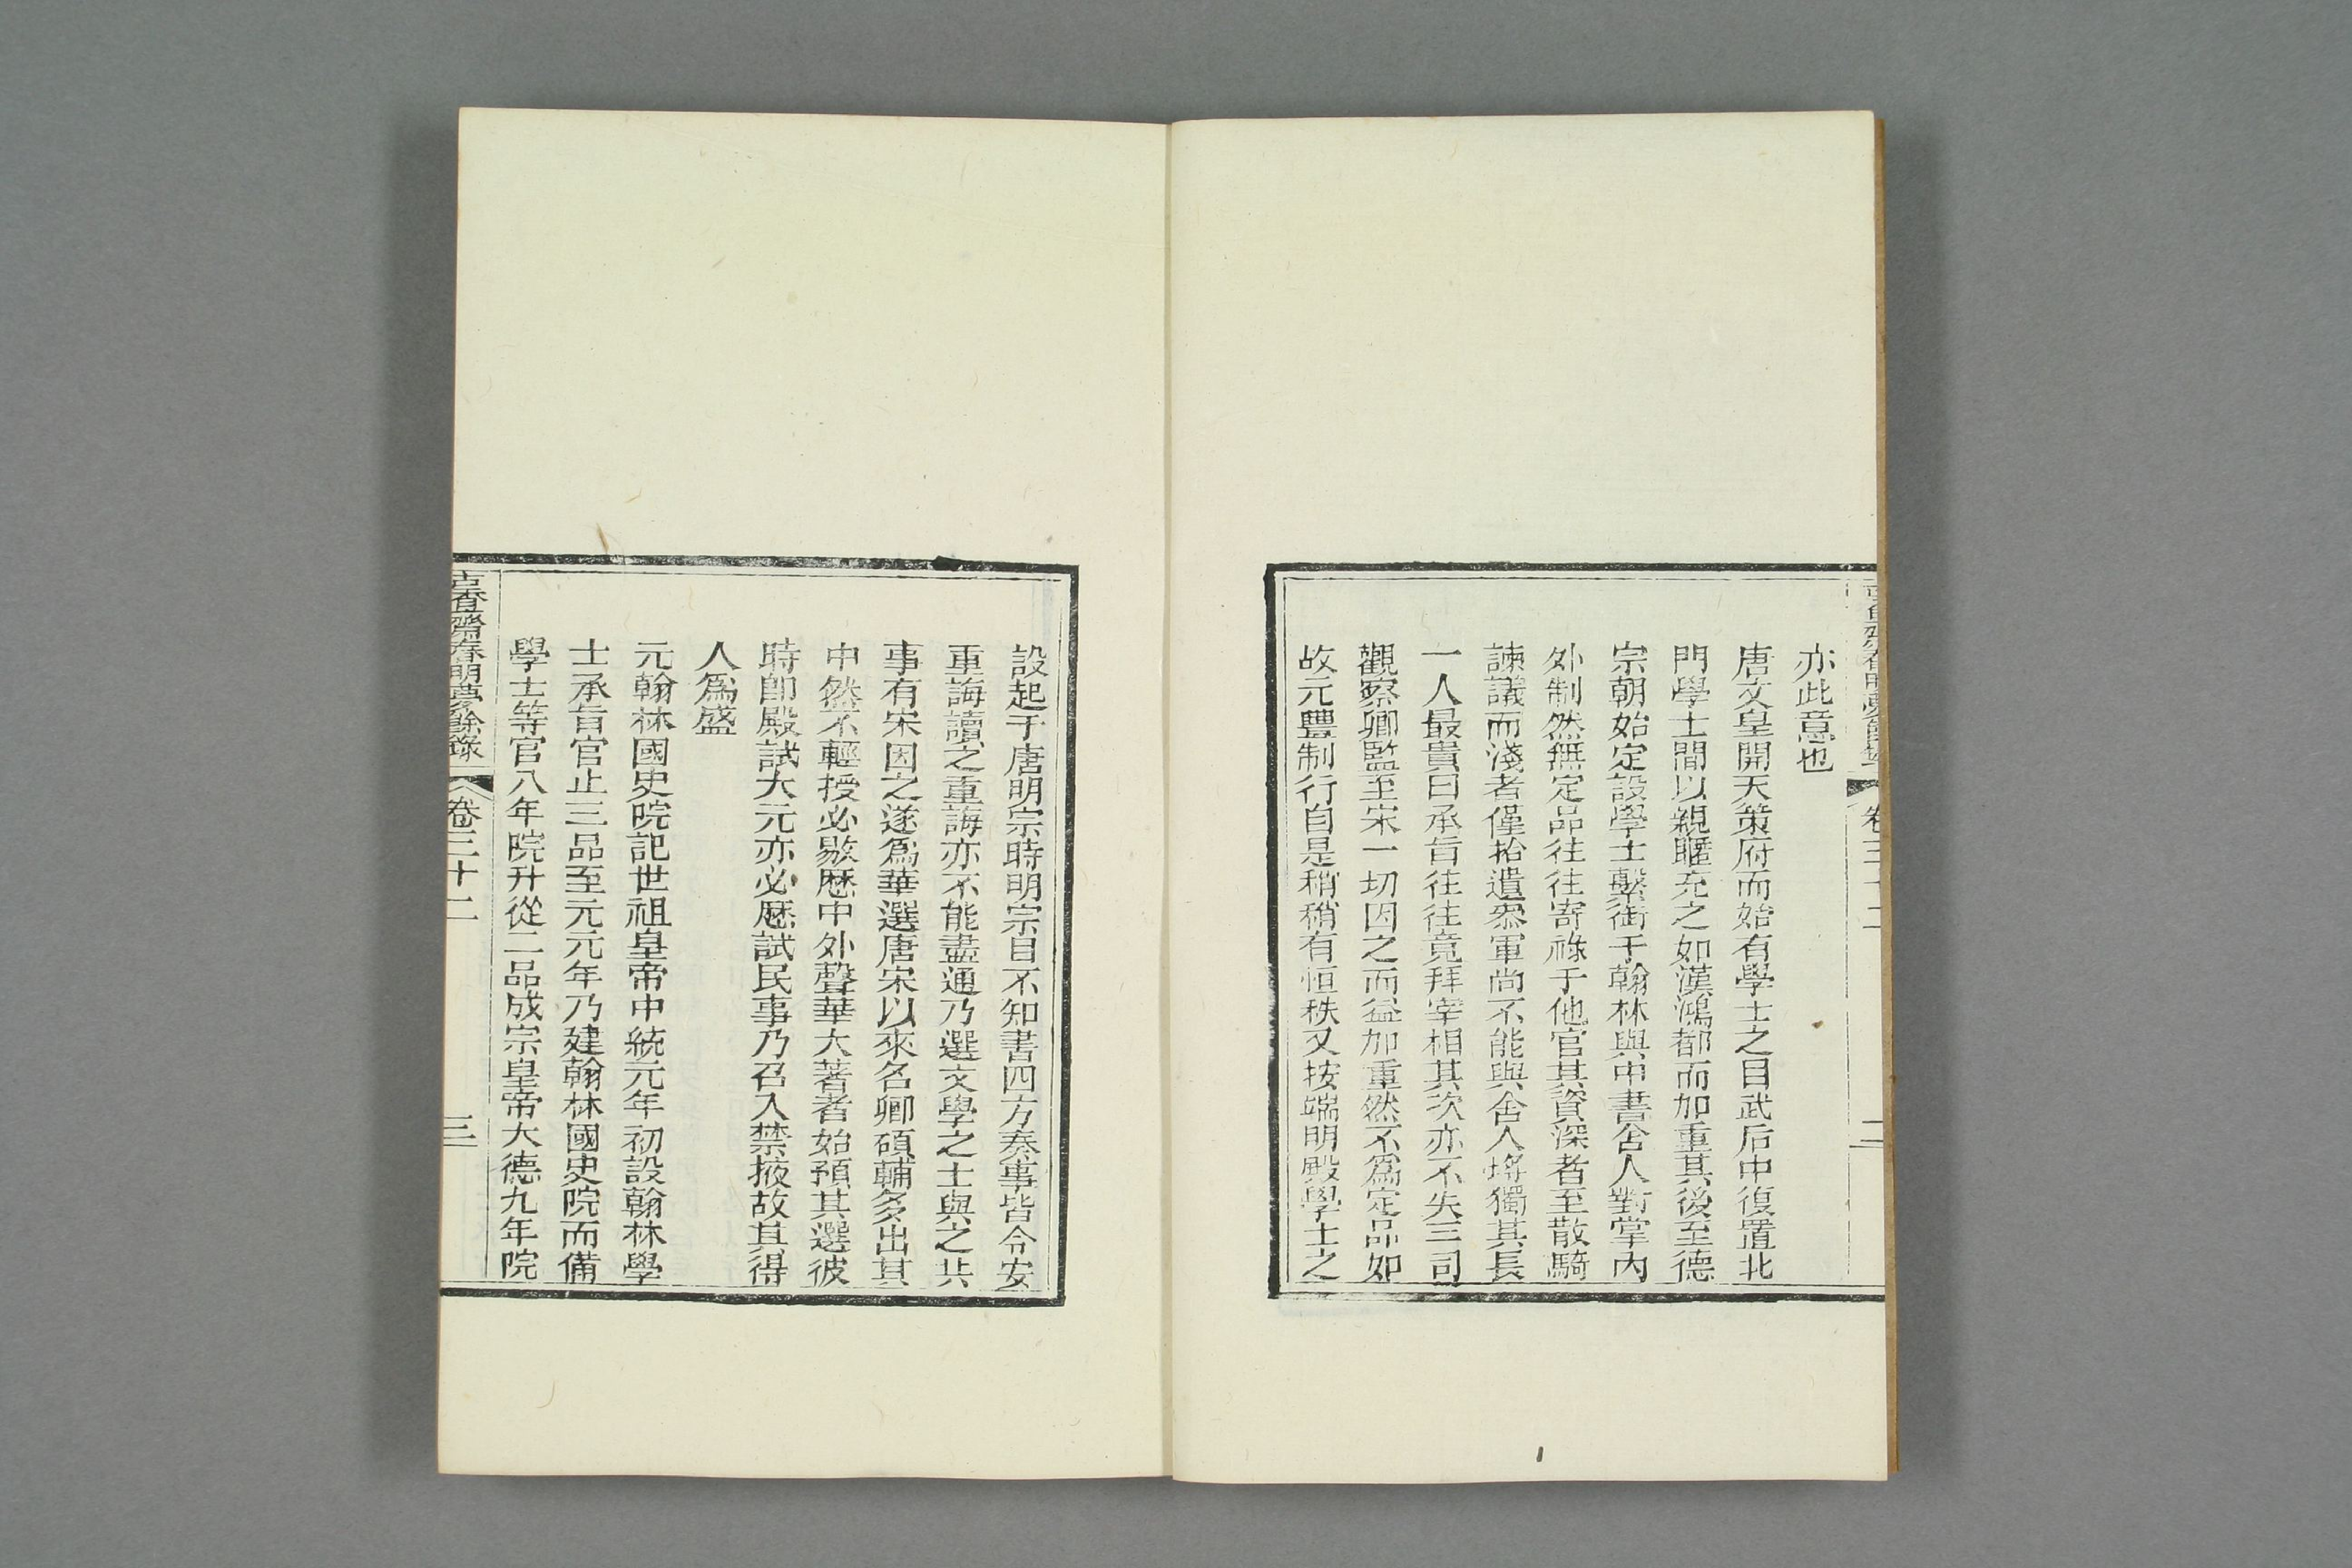 亦此意也
唐文皇開天策府而始有學士之目武后中復置北
門學士間以親暱充之如漢鴻都而加重其後至德
宗朝始定設學士繫銜于翰林與中書舍人對掌內
外制然無定品往往寄祿于他官其資深者至散騎
諫議而淺者僅拾遺叅軍尚不能與舍人埓獨其長
一人最貴曰承旨往往竟拜宰相其次亦不失三司
觀察卿監至宋一切因之而益加重然不爲定品如
故元豐制行自是稍稍有恒秩又按端明殿學士之
設起于唐明宗時明宗目不知書四方奏事皆令安
重誨讀之重誨亦不能盡通乃選文學之士與之共
事有宋因之遂爲華選唐宋以來名卿碩輔多出其
中然不輕授必敭歷中外聲華大著者始預其選彼
時卽殿試大元亦必歷試民事乃召入禁掖故其得
人爲盛
元翰林國史院記世祖皇帝中統元年初設翰林學
士承旨官止三品至元元年乃建翰林國史院而備
學士等官八年院升從二品成宗皇帝大德九年院
古香齋春明夢餘錄 卷三十二 三